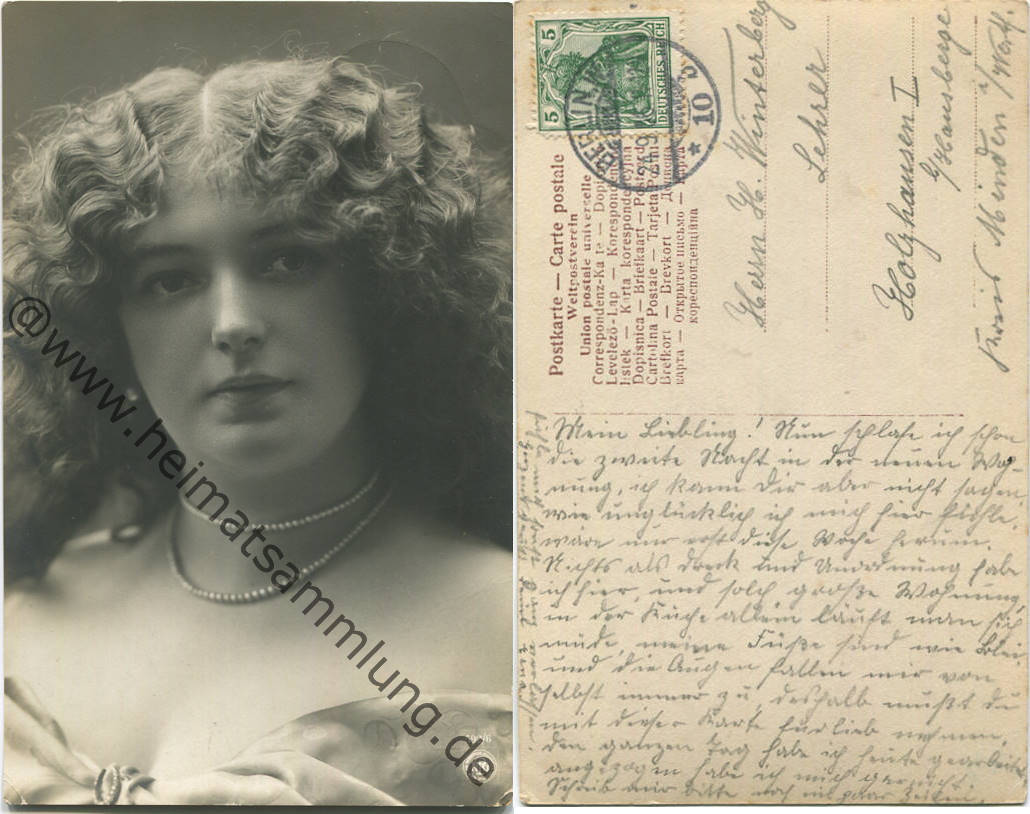 @www.heimatsammlung.de
5
5
DEUTSCHES REICH
BERLIN
10
Postkarte — Carte postale
Weltpostverein
Union postale universelle
Correspondenz-Karte — Dopis
Levelező-Lap — Korespondent
listek — Karta korespondencyjna
Dopisnica — Briefkaart — Postcard
Cartolina Postale — Tarjeta Postal
Brefkort — Brevkort —
карта — Открытое письмо — Карта
кореспонденційна
Herrn H. Winterberg
Lehrer
Holzhausen I
b/Hausberge
Kreis Minden i/Westf.
Mein Liebling! Nun schlafe ich schon
die zweite Nacht in der neuen Woh-
nung, ich kann Dir aber nicht sagen
wie unglücklich ich mich hier fühle,
wäre nur erst diese Woche herum.
Nichts als Dreck und Unordnung habe
ich hier, und solch große Wohnung,
in der Küche allein läuft man sich
müde, meine Füße sind wie Blei
und die Augen fallen mir von
selbst immer zu, deshalb mußt du
mit dieser Karte fürlieb nehmen,
den ganzen Tag habe ich heute gearbeitet
angezogen habe ich mich
Schreib mir bitte noch ein paar Zeilen.